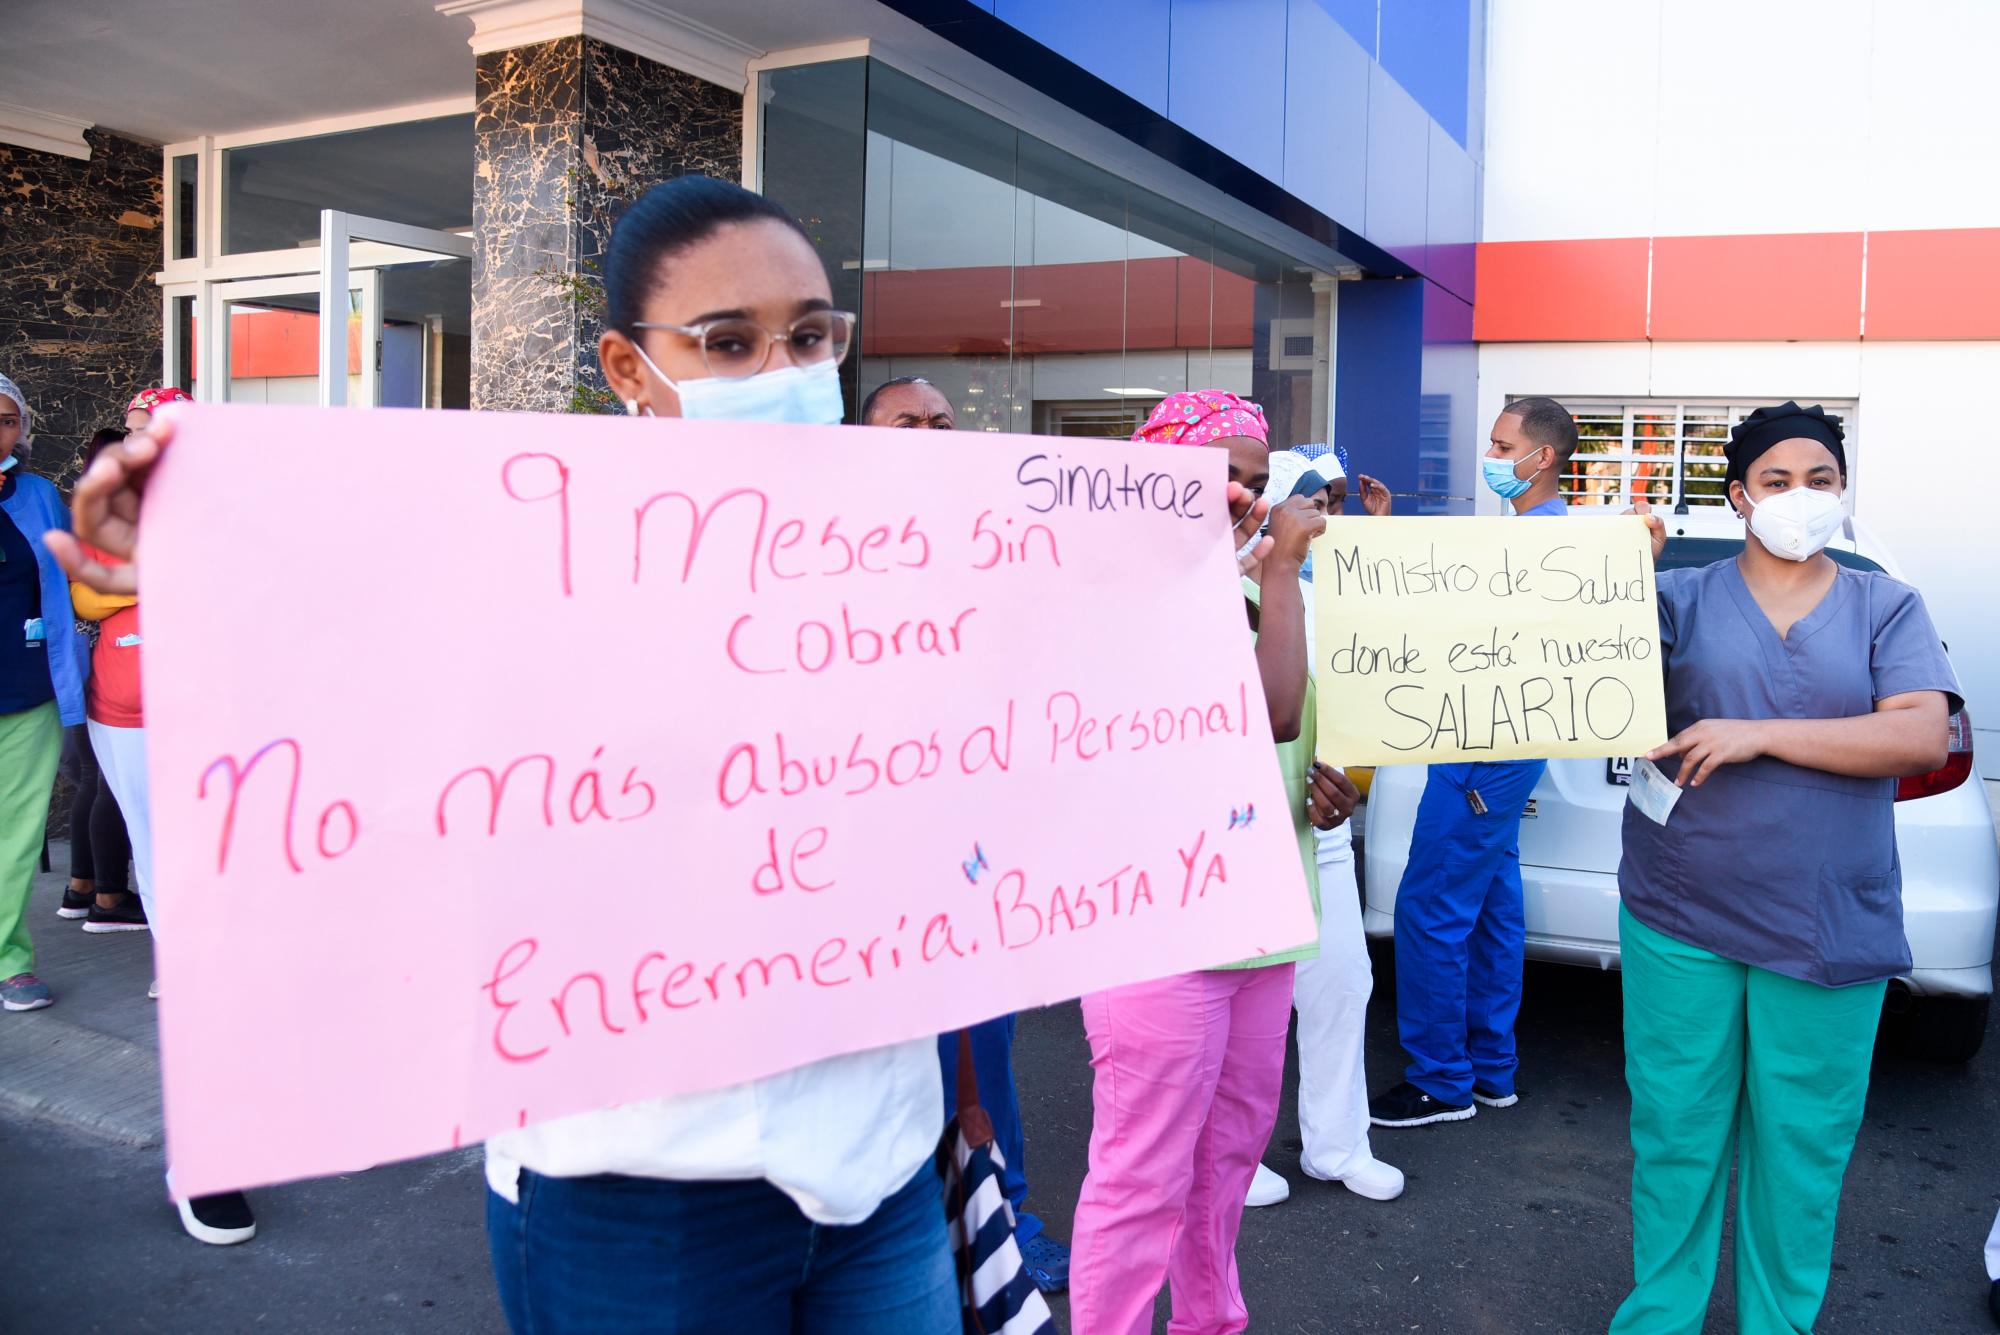 Sinatrae
9 Meses sin
cobrar
No más abusos al Personal
de
Enfermería. "BASTA YA"
Ministro de Salud
donde está nuestro
SALARIO